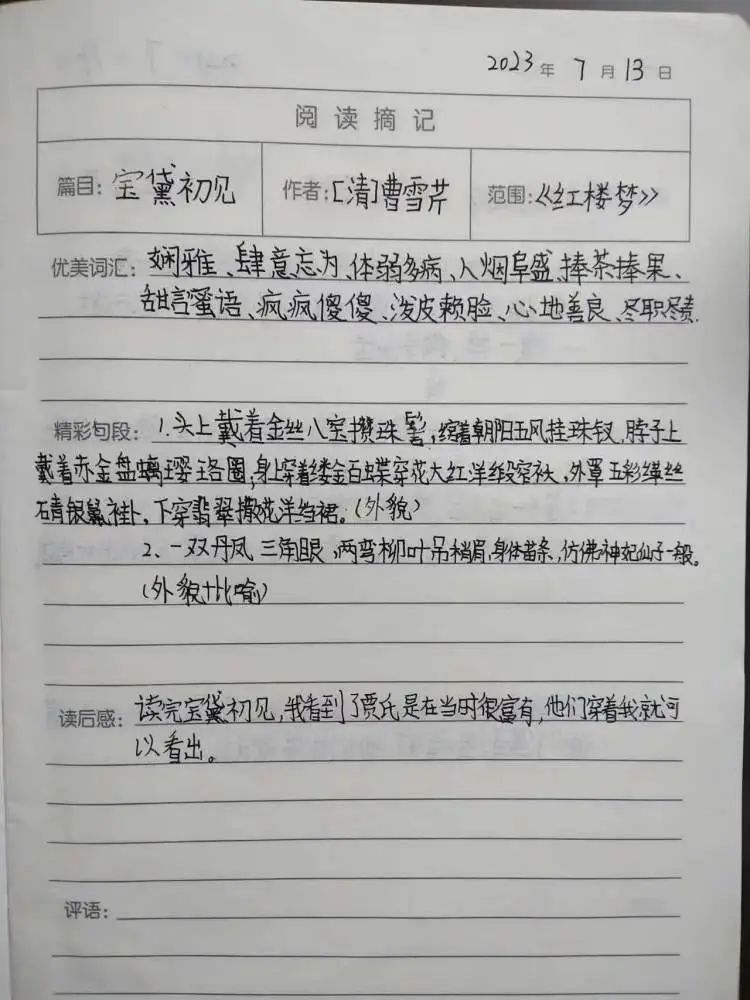 2023年 7月13日
阅读摘记
篇目：宝黛初见 作者：[清]曹雪芹 范围：《红楼梦》
优美词汇：娴雅、肆意忘为、体弱多病、人烟阜盛、捧茶捧果、
甜言蜜语、疯疯傻傻、泼皮赖脸、心地善良、尽职尽责.
精彩句段：1.头上戴着金丝八宝攒珠髻，绾着朝阳五凤挂珠钗，脖子上
戴着赤金盘螭璎珞圈，身上穿着缕金百蝶穿花大红洋缎窄袄，外罩五彩缂丝
石青银鼠褂，下穿翡翠撒花洋绉裙。（外貌）
2、一双丹凤三角眼，两弯柳叶吊梢眉，身体苗条，仿佛神妃仙子一般。
（外貌+比喻）
读后感：读完宝黛初见，我看到了贾氏是在当时很富有，他们穿着我就可
以看出。
评语：